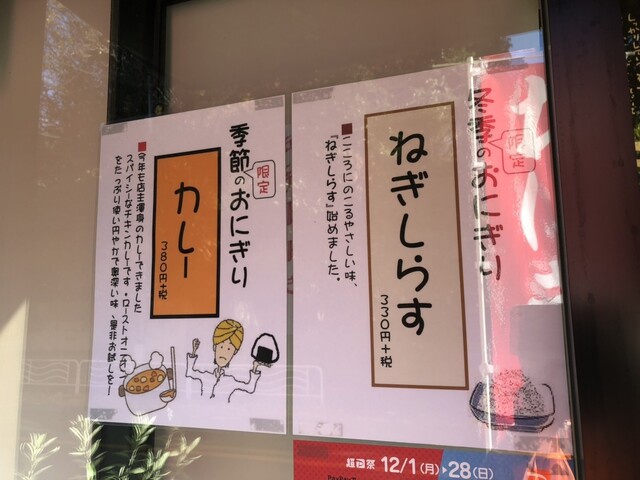 冬季のおにぎり
限定
ねぎしらす
330円+税
■こころにのこるやさしい味、
『ねぎしらす』始めました。
季節のおにぎり
限定
カレー
380円+税
■今年も店主渾身のカレーできました
スパイシーなチキンカレーです。ローストオニオン
をたっぷり使い円やかで奥深い味、是非お試しを!
超 祭 12/1(月)▶28(日)